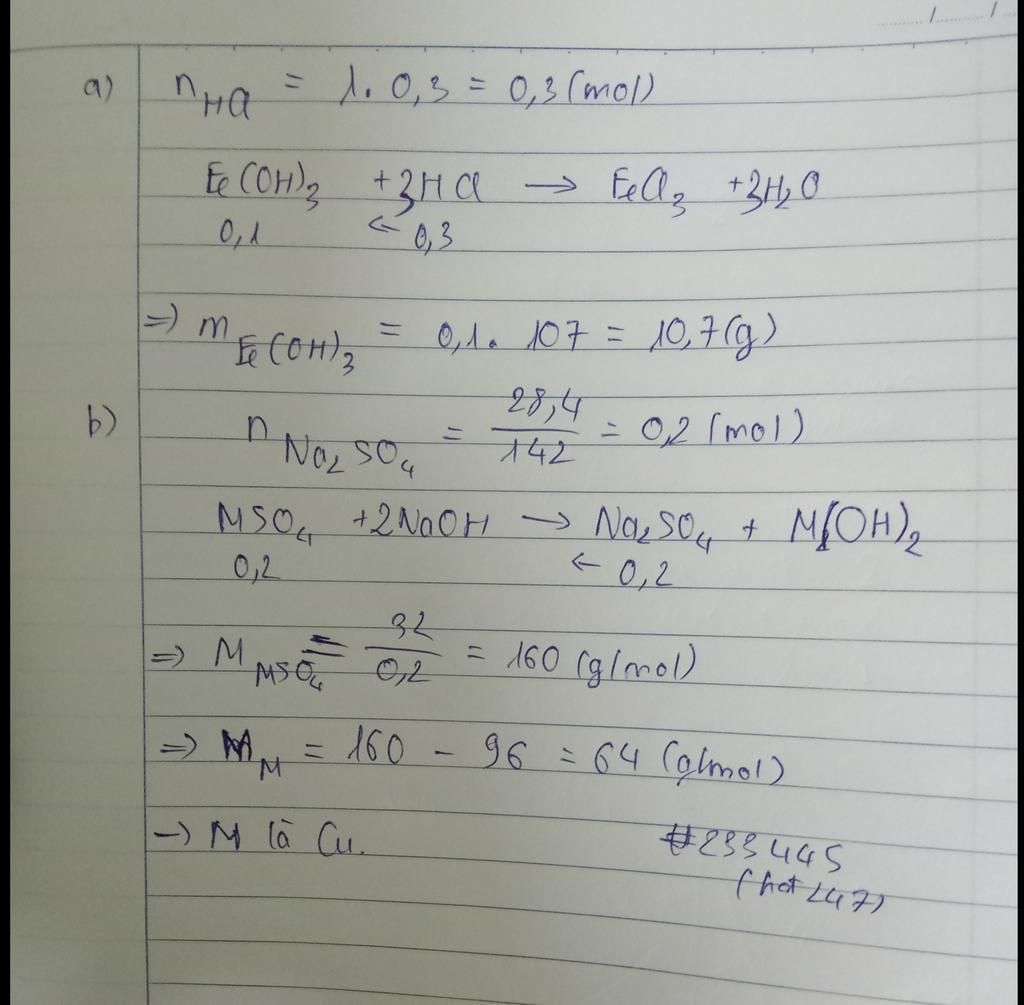 a) nHCl = 1. 0,3 = 0,3 (mol)
Fe(OH)3 + 3HCl → FeCl3 + 3H2O
0,1 ← 0,3
=) mFe(OH)3 = 0,1. 107 = 10,7(g)
b) nNa2SO4 = 28,4/142 = 0,2 (mol)
MSO4 + 2NaOH → Na2SO4 + M(OH)2
0,2 ← 0,2
=) MMSO4 = 32/0,2 = 160 (g/mol)
=) MM = 160 - 96 = 64 (g/mol)
-) M là Cu.
#233445
(hot247)